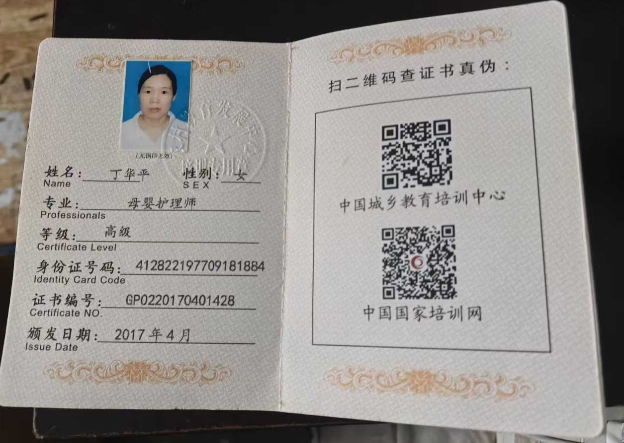 (无钢印无效)
姓名: 丁华平 性别: 女
Name SEX
专业: 母婴护理师
Professionals
等级: 高级
Certificate Level
身份证号码: 412822197709181884
Identity Card Code
证书编号: GP0220170401428
Certificate NO.
颁发日期: 2017年4月
Issue Date
扫二维码查证书真伪:
中国城乡教育培训中心
中国国家培训网